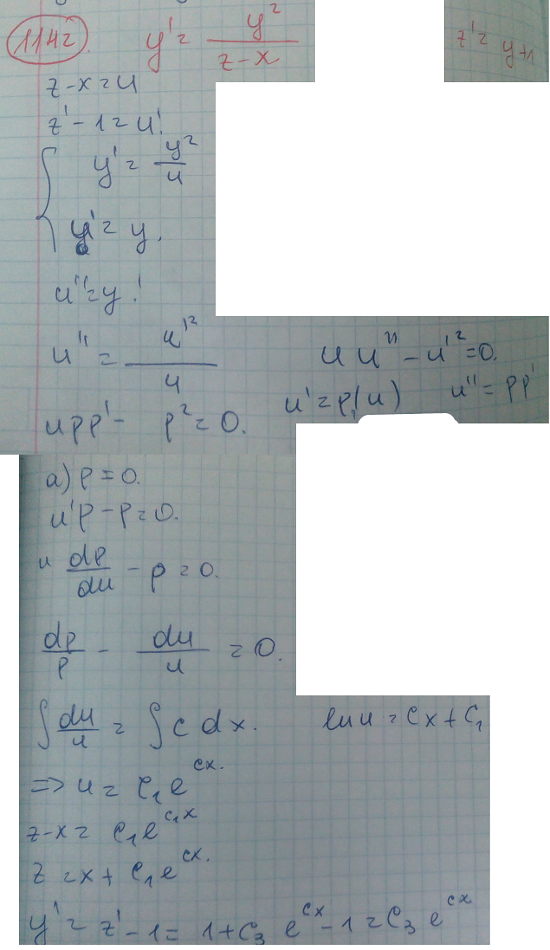 1142. y' = y²/(z-x) z' = y+1
z-x=u
z'-1=u'.
{ y' = y²/u
u' = y.
u''=y'.
u'' = u'²/u uu''-u'²=0.
upp'- p²=0. u'=p(u) u''=pp'
a) p=0.
u'p-p=0.
u dp/du - p=0.
dp/p - du/u = 0.
∫ du/u = ∫ c dx. ln u = cx+c₁
=> u = c₁e^cx.
z-x = c₁e^c₁x
z = x+c₁e^cx.
y' = z'-1 = 1+c₃ e^cx -1 = c₃ e^cx